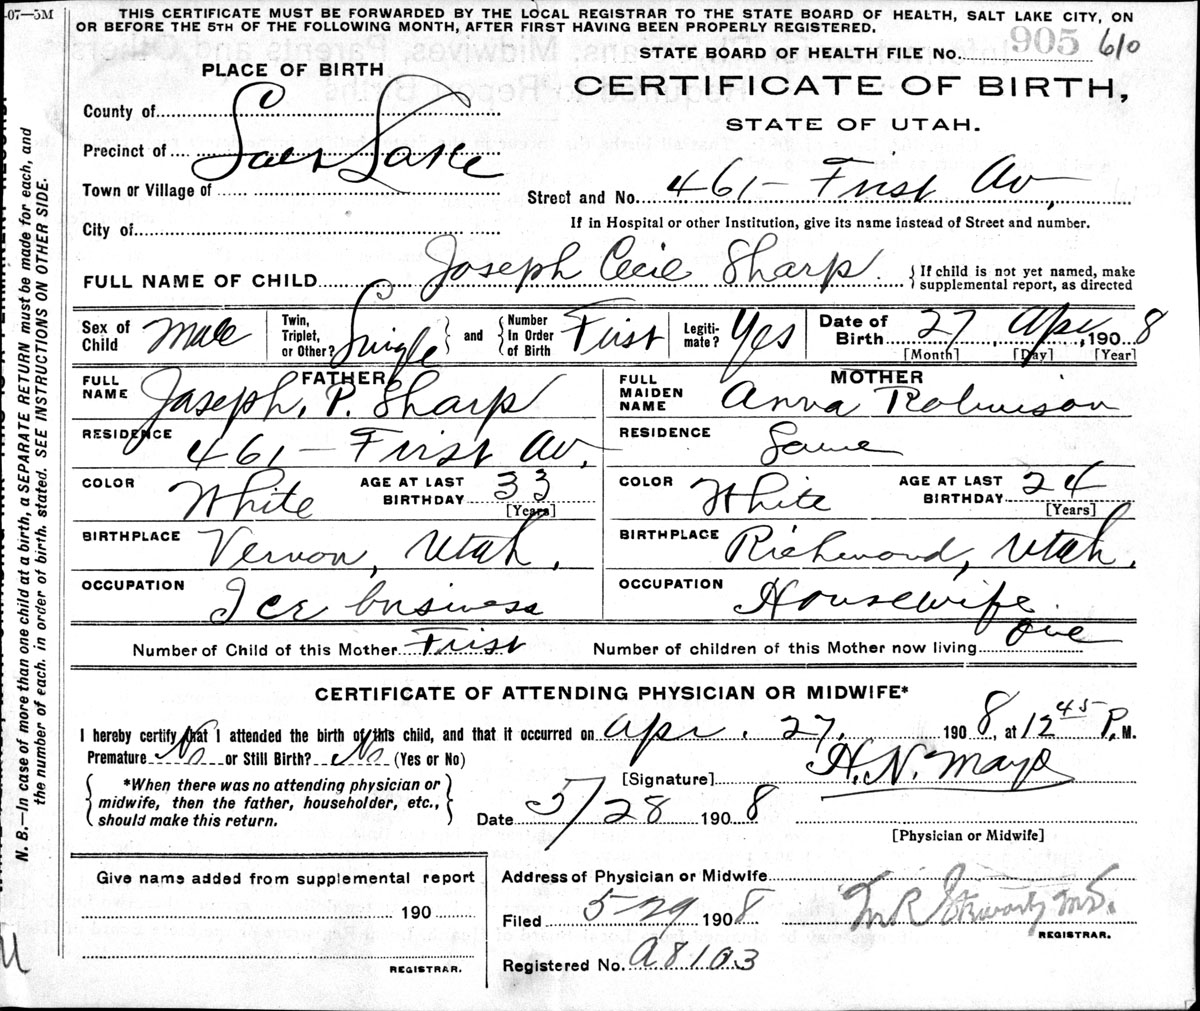 -07—5M
THIS CERTIFICATE MUST BE FORWARDED BY THE LOCAL REGISTRAR TO THE STATE BOARD OF HEALTH, SALT LAKE CITY, ON
OR BEFORE THE 5TH OF THE FOLLOWING MONTH, AFTER FIRST HAVING BEEN PROPERLY REGISTERED.
STATE BOARD OF HEALTH FILE No. 905 610
PLACE OF BIRTH
CERTIFICATE OF BIRTH,
STATE OF UTAH.
County of
Precinct of Salt Lake
Town or Village of
Street and No. 461 - First Av,
City of
If in Hospital or other Institution, give its name instead of Street and number.
FULL NAME OF CHILD Joseph Cecil Sharp. { If child is not yet named, make
supplemental report, as directed
Sex of Child Male Twin, Triplet, or Other? Single } and { Number In Order of Birth First Legiti-mate? Yes Date of Birth 27, Apr, 1908
[Month] [Day] [Year]
FATHER MOTHER
FULL NAME Joseph, P. Sharp FULL MAIDEN NAME Anna Robinson
RESIDENCE 461 - First Av. RESIDENCE Same
COLOR White AGE AT LAST BIRTHDAY 33 [Years] COLOR White AGE AT LAST BIRTHDAY 24 [Years]
BIRTHPLACE Vernon, Utah. BIRTHPLACE Richmond, Utah.
OCCUPATION Ice business OCCUPATION Housewife
Number of Child of this Mother First Number of children of this Mother now living one
CERTIFICATE OF ATTENDING PHYSICIAN OR MIDWIFE*
I hereby certify that I attended the birth of this child, and that it occurred on Apr. 27, 1908, at 12 45 P. M.
Premature No or Still Birth? No (Yes or No)
*When there was no attending physician or
midwife, then the father, householder, etc.,
should make this return.
[Signature] H. N. Mayo
Date 5/28 1908
[Physician or Midwife]
Give name added from supplemental report
190
REGISTRAR.
Address of Physician or Midwife
Filed 5-29 1908 M.D.
REGISTRAR.
Registered No. A8103
N. B.—In case of more than one child at a birth, a SEPARATE RETURN must be made for each, and
the number of each, in order of birth, stated. SEE INSTRUCTIONS ON OTHER SIDE.